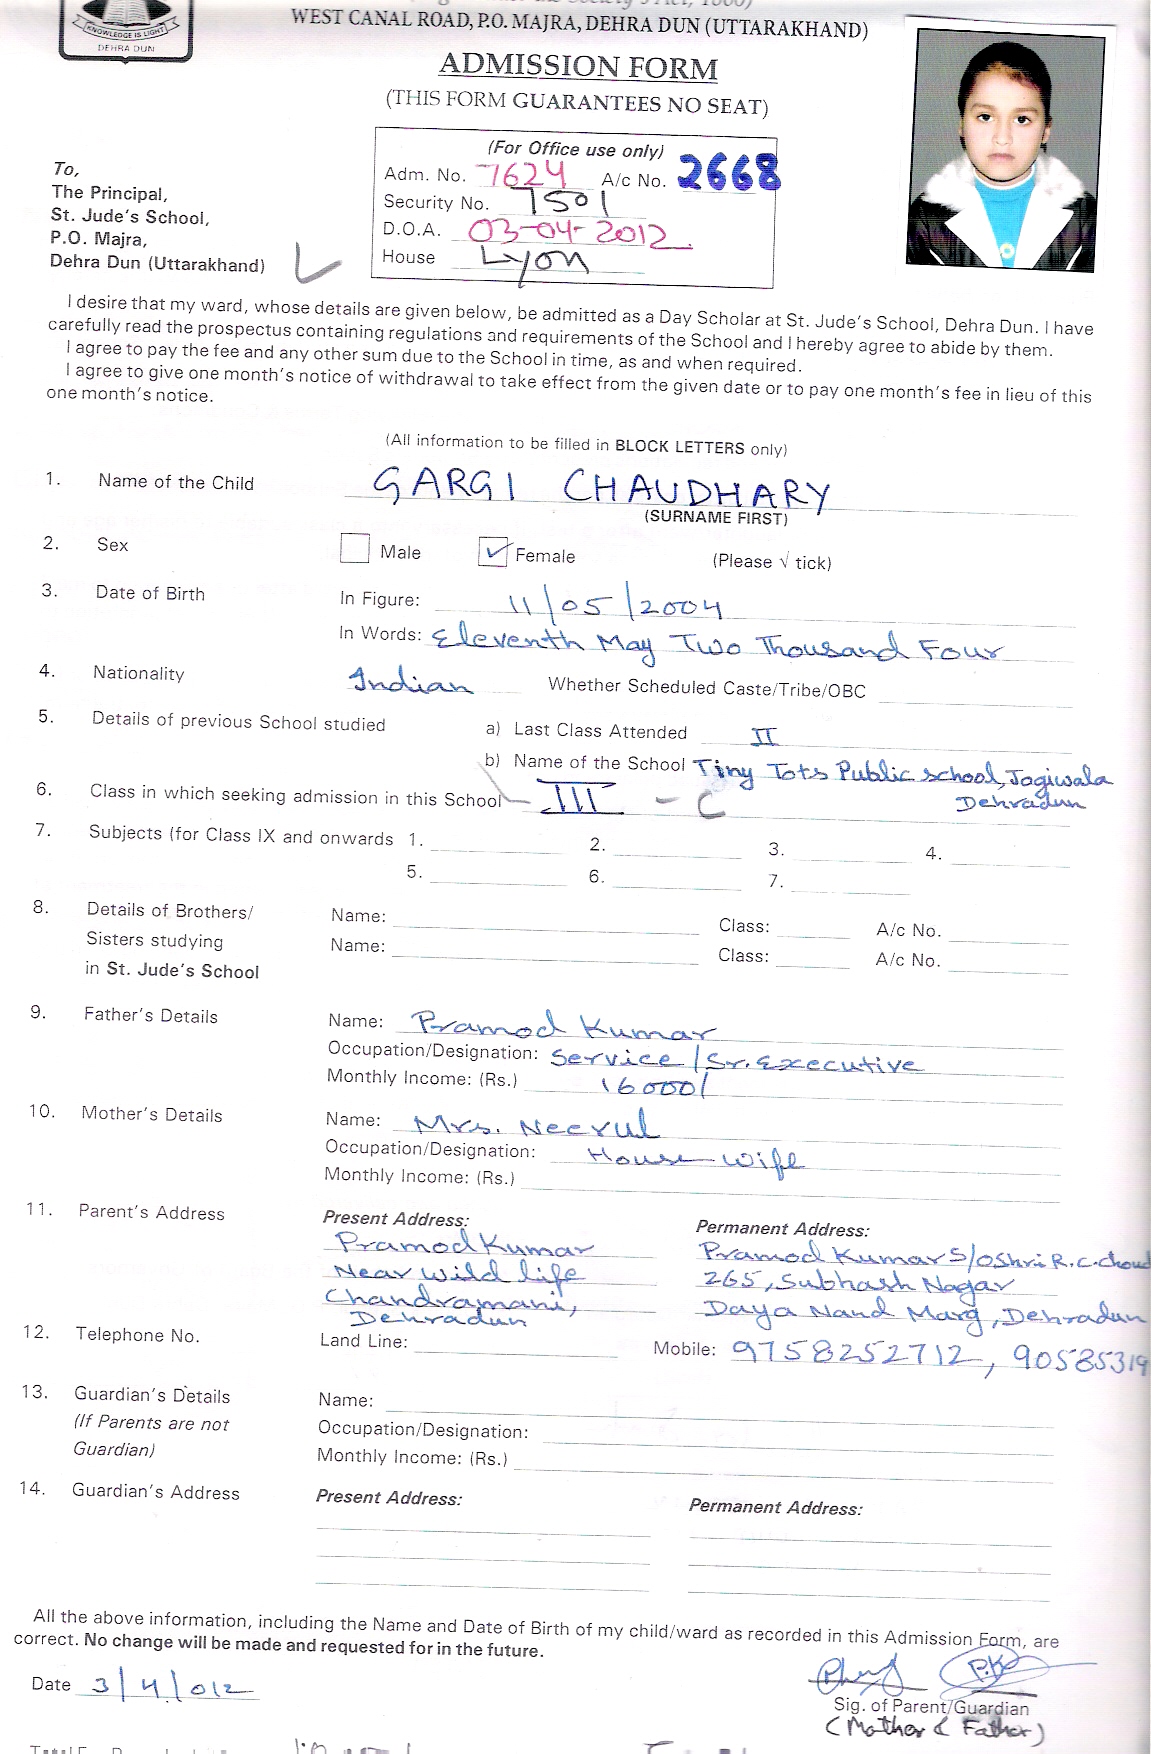 KNOWLEDGE IS LIGHT
DEHRA DUN
WEST CANAL ROAD, P.O. MAJRA, DEHRA DUN (UTTARAKHAND)
ADMISSION FORM
(THIS FORM GUARANTEES NO SEAT)
(For Office use only)
Adm. No. 7624 A/c No. 2668
Security No. 7501
D.O.A. 03-04-2012
House Lyon
To,
The Principal,
St. Jude's School,
P.O. Majra,
Dehra Dun (Uttarakhand)
I desire that my ward, whose details are given below, be admitted as a Day Scholar at St. Jude's School, Dehra Dun. I have
carefully read the prospectus containing regulations and requirements of the School and I hereby agree to abide by them.
I agree to pay the fee and any other sum due to the School in time, as and when required.
I agree to give one month's notice of withdrawal to take effect from the given date or to pay one month's fee in lieu of this
one month's notice.
(All information to be filled in BLOCK LETTERS only)
1. Name of the Child GARGI CHAUDHARY
(SURNAME FIRST)
2. Sex Male ✓ Female (Please √ tick)
3. Date of Birth In Figure: 11/05/2004
In Words: Eleventh May Two Thousand Four
4. Nationality Indian Whether Scheduled Caste/Tribe/OBC
5. Details of previous School studied a) Last Class Attended II
b) Name of the School Tiny Tots Public school, Jogiwala
Dehradun
6. Class in which seeking admission in this School III - C
7. Subjects (for Class IX and onwards 1. 2. 3. 4.
5. 6. 7.
8. Details of Brothers/ Name: Class: A/c No.
Sisters studying Name: Class: A/c No.
in St. Jude's School
9. Father's Details Name: Pramod Kumar
Occupation/Designation: Service/Sr. Executive
Monthly Income: (Rs.) 16000/
10. Mother's Details Name: Mrs. Neerul
Occupation/Designation: House wife
Monthly Income: (Rs.)
11. Parent's Address Present Address: Permanent Address:
Pramod Kumar Pramod Kumar S/o Shri R.C. Choud
Near Wild life 265, Subhash Nagar
Chandramani, Daya Nand Marg, Dehradun
Dehradun
12. Telephone No. Land Line: Mobile: 9758252712, 90585319
13. Guardian's Details Name:
(If Parents are not Occupation/Designation:
Guardian) Monthly Income: (Rs.)
14. Guardian's Address Present Address: Permanent Address:
All the above information, including the Name and Date of Birth of my child/ward as recorded in this Admission Form, are
correct. No change will be made and requested for in the future.
Date 3/4/012
Sig. of Parent/Guardian
(Mother & Father)